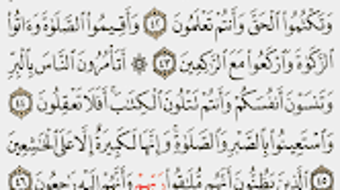 وَتَكْتُمُوا۟ ٱلْحَقَّ وَأَنتُمْ تَعْلَمُونَ ٤٢ وَأَقِيمُوا۟ ٱلصَّلَوٰةَ وَءَاتُوا۟
ٱلزَّكَوٰةَ وَٱرْكَعُوا۟ مَعَ ٱلرَّٰكِعِينَ ٤٣ ۞ أَتَأْمُرُونَ ٱلنَّاسَ بِٱلْبِرِّ
وَتَنسَوْنَ أَنفُسَكُمْ وَأَنتُمْ تَتْلُونَ ٱلْكِتَٰبَ ۚ أَفَلَا تَعْقِلُونَ ٤٤
وَٱسْتَعِينُوا۟ بِٱلصَّبْرِ وَٱلصَّلَوٰةِ ۚ وَإِنَّهَا لَكَبِيرَةٌ إِلَّا عَلَى ٱلْخَٰشِعِينَ
٤٥ ٱلَّذِينَ يَظُنُّونَ أَنَّهُم مُّلَٰقُوا۟ رَبِّهِمْ وَأَنَّهُمْ إِلَيْهِ رَٰجِعُونَ ٤٦